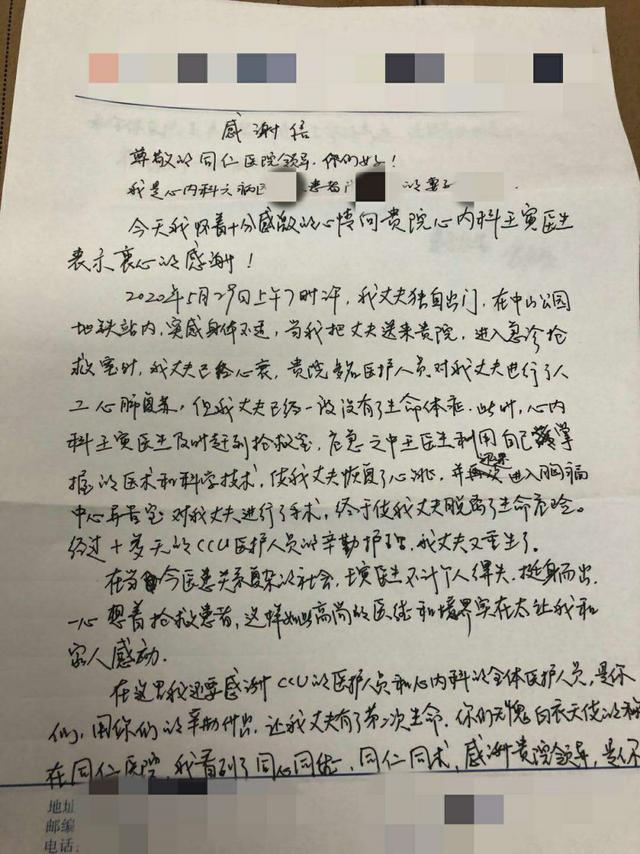 感谢信
尊敬的同仁医院领导.你们好!
我是心内科六病区 患者 的妻子
今天我怀着十分感激的心情向贵院心内科王寅医生
表示衷心的感谢!
2020年5月29日上午7时许,我丈夫独自出门,在中山公园
地铁站内,突感身体不适,当我把丈夫送来贵院,进入急诊抢
救室时,我丈夫已经心衰,贵院 医护人员对我丈夫进行了人
工心肺复苏,但我丈夫已经一度没有了生命体征.此时,心内
科王寅医生及时赶到抢救室,危急之中王医生利用自己掌
握的医术和科学技术,使我丈夫恢复了心跳,并迅速进入胸痛
中心导管室对我丈夫进行了手术,终于使我丈夫脱离了生命危险。
经过十多天的CCU医护人员的辛勤护理,我丈夫又重生了。
在当今医患关系复杂的社会,王寅医生不计个人得失,挺身而出,
一心想着抢救患者,这样如此高尚的医德和境界实在太让我和
家人感动.
在这里我还要感谢CCU的医护人员和心内科的全体医护人员,是你
们,用你们的辛勤付出,让我丈夫有了第二次生命.你们无愧白衣天使的称
在同仁医院,我看到了同心同德,同仁同术,感谢贵院领导,是你
地址
邮编
电话: